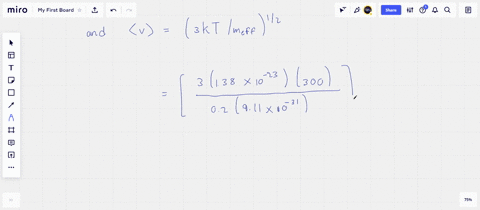 miro My First Board Share
and ⟨v⟩ = (3kT/meff)^1/2
= [ 3 (138 × 10^-23) (300) / 0.2 (9.11 × 10^-31) ]
75%